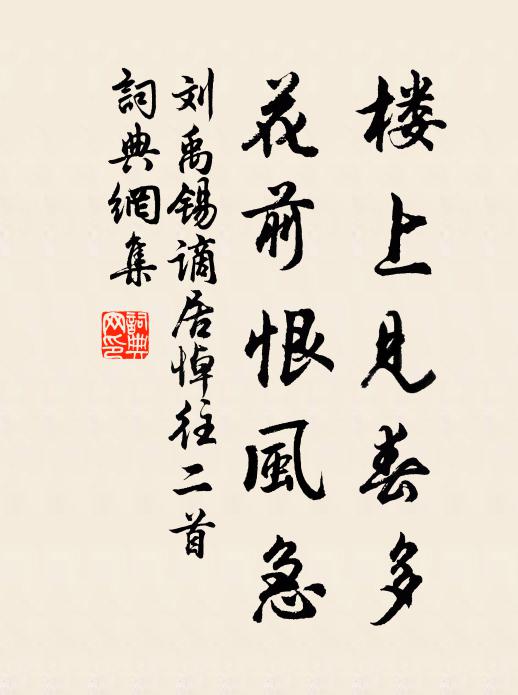 楼上见春多
花前恨風急
刘禹锡谪居悼往二首
詞典網集
詞典网印